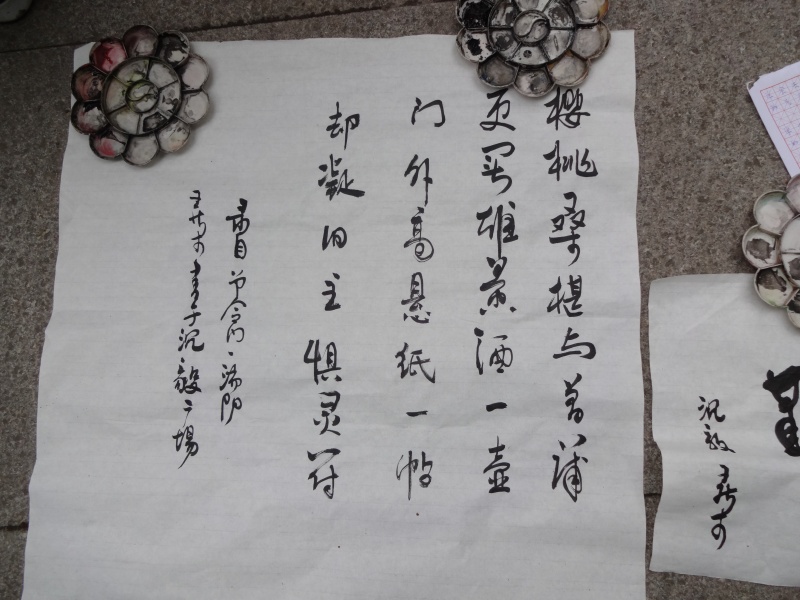 樱桃桑椹与菖蒲
更买雄黄酒一壶
门外高悬纸一帖
却凝旧主惧灵符
录自节令门·端阳
书于沉毅广场
沉毅